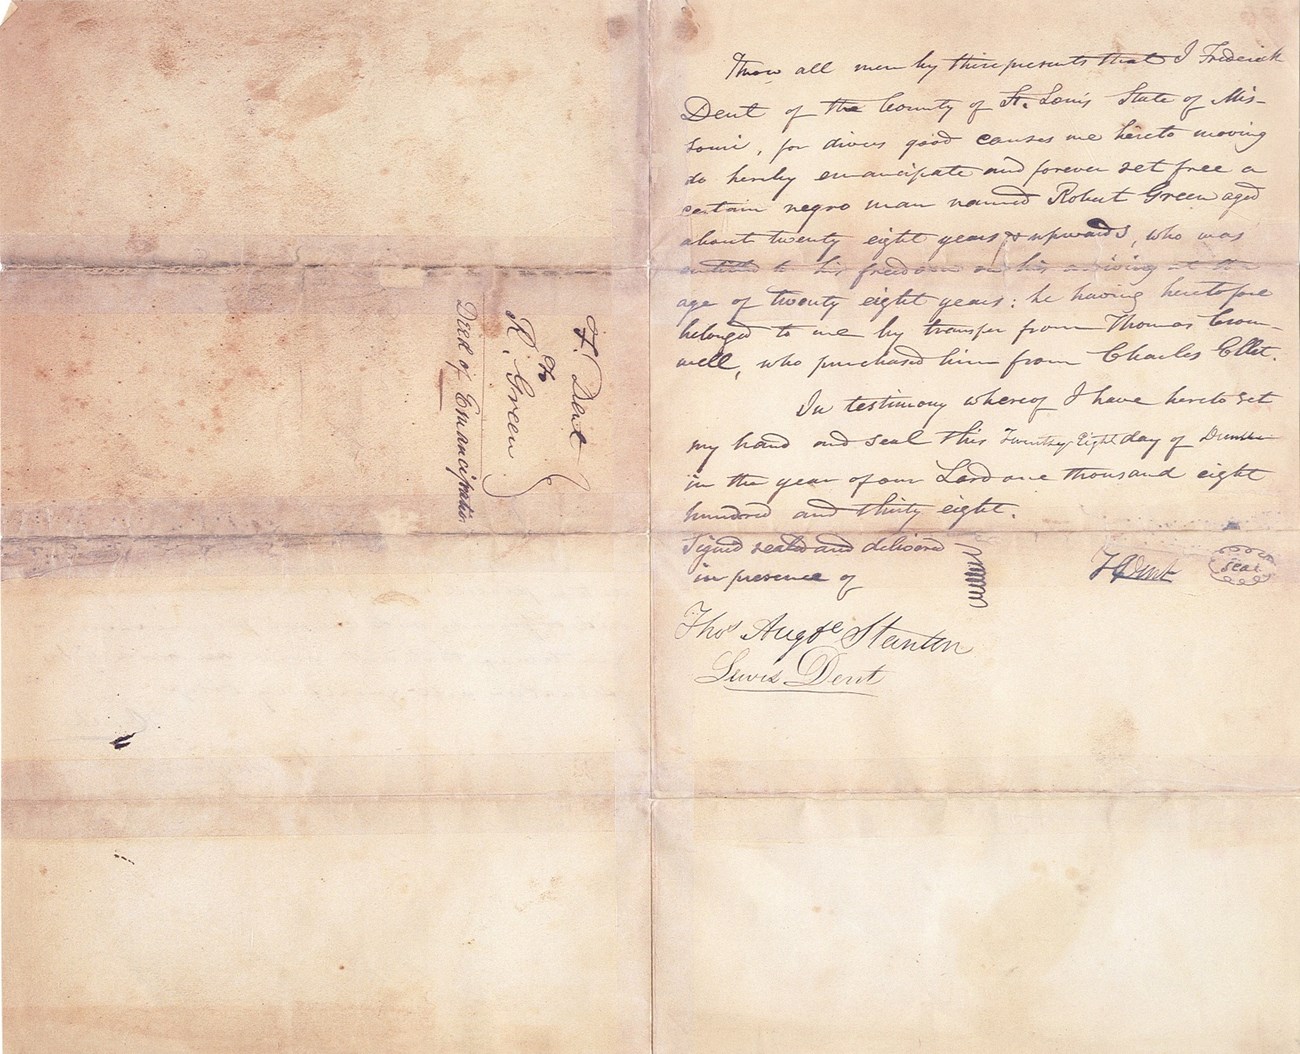 F. Dent
to
R. Green
Deed of Emancipation
Know all men by these presents that I Frederick
Dent of the County of St. Louis State of Mis-
souri, for divers good causes me hereto moving
do hereby emancipate and forever set free a
certain negro man named Robert Green aged
about twenty eight years & upwards, who was
entitled to his freedom on his arriving at the
age of twenty eight years: he having heretofore
belonged to me by transfer from Thomas Crom-
well, who purchased him from Charles Ellet.
In testimony whereof I have hereto set
my hand and seal this Twenty Eight day of December
in the year of our Lord one thousand eight
hundred and thirty eight.
Signed sealed and delivered
in presence of
F Dent seal
Thos Augte Stanton
Lewis Dent